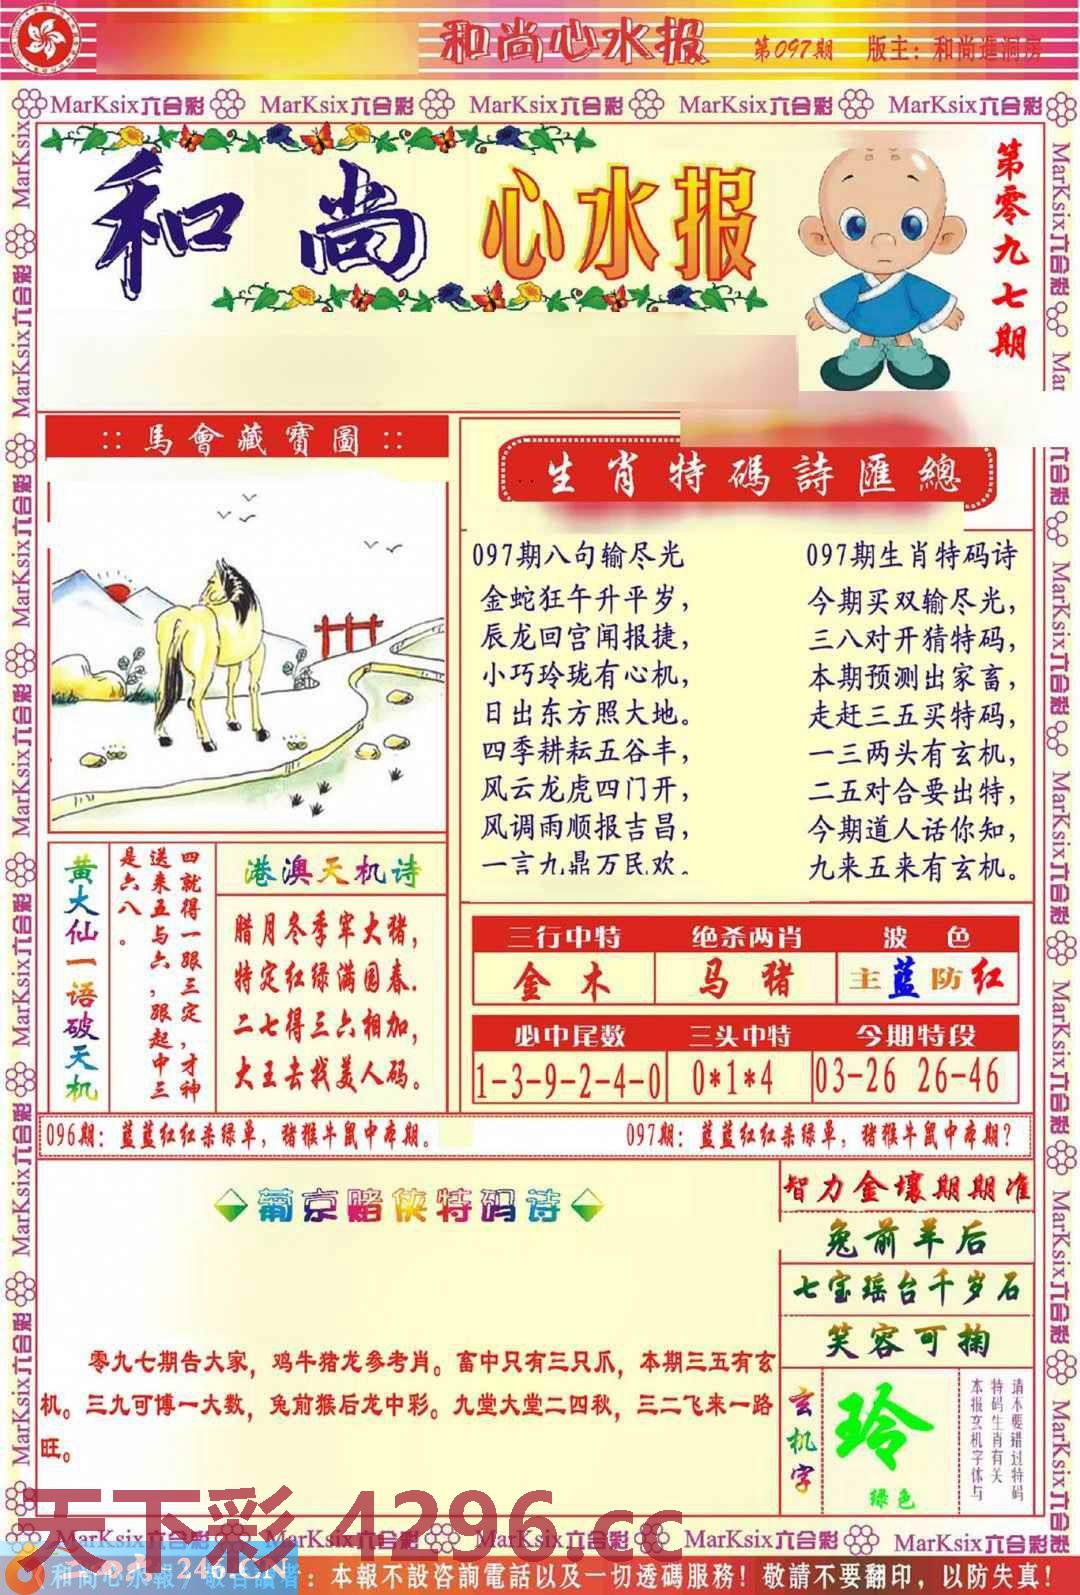 和尚心水报 第097期 版主：和尚進洞房
MarKsix六合彩 MarKsix六合彩 MarKsix六合彩 MarKsix六合彩 MarKsix六合彩
和尚心水报
第零九七期
:: 馬會藏寶圖 ::
生肖特碼詩匯總
097期八句输尽光
金蛇狂午升平岁，
辰龙回宫闻报捷，
小巧玲珑有心机，
日出东方照大地。
四季耕耘五谷丰，
风云龙虎四门开，
风调雨顺报吉昌，
一言九鼎万民欢.
097期生肖特码诗
今期买双输尽光，
三八对开猜特码，
本期预测出家畜，
走赶三五买特码，
一三两头有玄机，
二五对合要出特，
今期道人话你知，
九来五来有玄机。
黄大仙一语破天机
四就得一跟三定，才神
送来五与六，跟起中三
是六八。
港澳天机诗
腊月冬季牢大猪，
特定红绿满园春.
二七得三六相加，
大王去找美人码。
三行中特 绝杀两肖 波 色
金木 马猪 主蓝防红
必中尾数 三头中特 今期特段
1-3-9-2-4-0 0*1*4 03-26 26-46
096期：蓝蓝红红杀绿单，猪猴牛鼠中本期。 097期：蓝蓝红红杀绿单，猪猴牛鼠中本期？
葡京赌侠特码诗
零九七期告大家，鸡牛猪龙参考肖。畜中只有三只爪，本期三五有玄
机。三九可博一大数，兔前猴后龙中彩。九堂大堂二四秋，三二飞来一路
旺。
智力金壤期期准
兔前羊后
七宝瑶台千岁石
笑容可掬
玄机字
玲
绿色
请不要错过特码
特码生肖有关
本报玄机字体与
天下彩 4296.cc
MarKsix六合彩 MarKsix六合彩 MarKsix六合彩 MarKsix六合彩 MarKsix六合彩
246.CN
和尚心水報
：本報不設咨詢電話以及一切透碼服務！敬請不要翻印，以防失真！